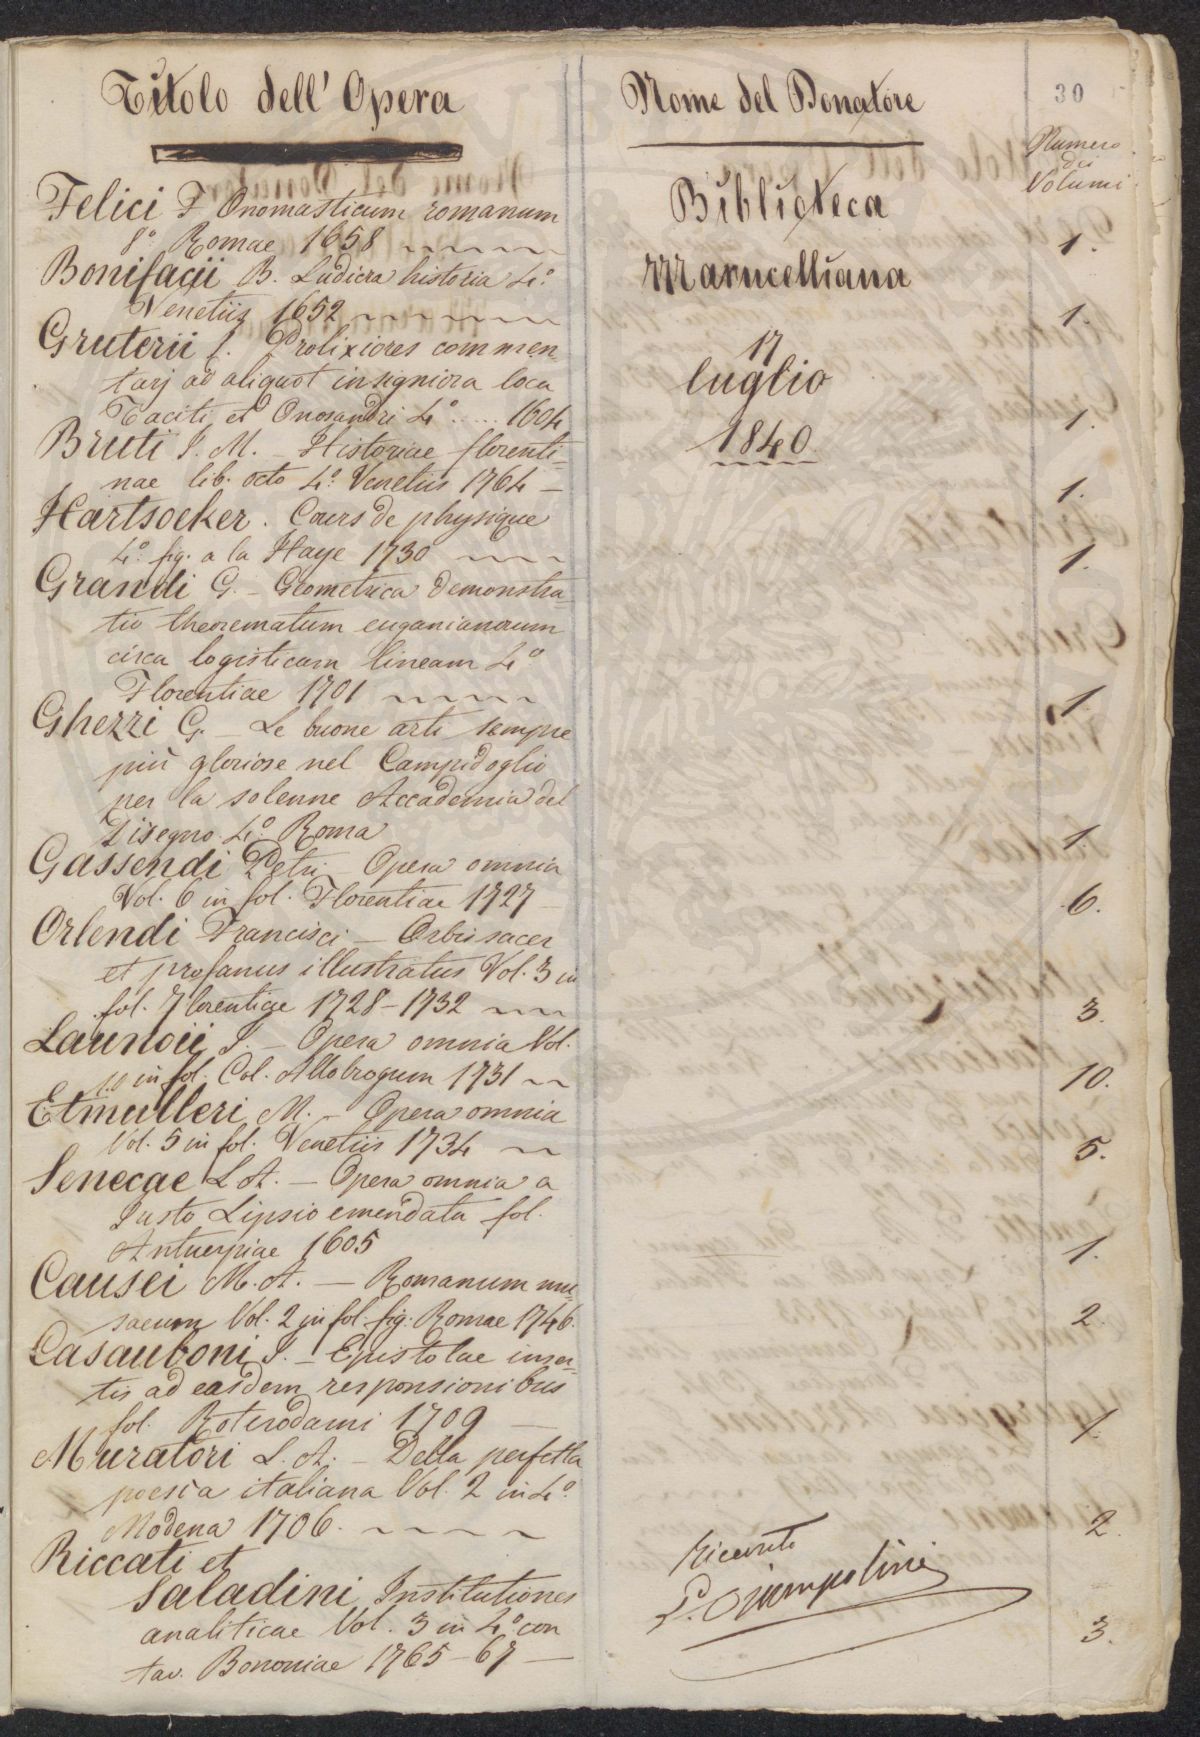 Titolo dell' Opera
Nome del Donatore
30
Numero
dei
Volumi
Felici F. Onomasticum romanum
8.° Romae 1658
1.
Bonifacii B. Ludicra historia 4.°
Venetiis 1652
1.
Gruterii J. Prolixiores commen-
tarj ad aliquot insigniora loca
Taciti et Onosandri 4.° .... 1604
1.
Bruti J. M. – Historiae florenti-
nae lib. octo 4.° Venetiis 1764 –
1.
Hartsoeker. Cours de physique
4.° fig. a la Haye 1730
1.
Grandi G. – Geometrica demonstra-
tio theorematum euganianorum
circa logisticam lineam 4.°
Florentiae 1701
1.
Ghezzi G. – Le buone arti sempre
più gloriose nel Campidoglio
per la solenne Accademia del
Disegno 4.° Roma
1.
Gassendi Petri – Opera omnia
Vol. 6 in fol. Florentiae 1727 –
6.
Orlendi Francisci – Orbis sacer
et profanus illustratus Vol. 3 in
fol. Florentiae 1728–1732
3.
Launoii J. – Opera omnia Vol.
10 in fol. Col. Allobrogum 1731
10.
Etmulleri M. – Opera omnia
Vol. 5 in fol. Venetiis 1734
5.
Senecae L. A. – Opera omnia a
Justo Lipsio emendata fol.
Antuerpiae 1605
1.
Causei M. A. – Romanum mu-
saeum Vol. 2 in fol. fig. Romae 1746.
2.
Casauboni J. – Epistolae inser-
tis ad easdem responsionibus
fol. Roterodami 1709 –
1.
Muratori L. A. – Della perfetta
poesia italiana Vol. 2 in 4.°
Modena 1706.
2.
Riccati et
Saladini Institutiones
analiticae Vol. 3 in 4.° con
tav. Bononiae 1765–67 –
3.
Biblioteca
Marucelliana
17
luglio
1840
Ricevuto
P. Giampolini